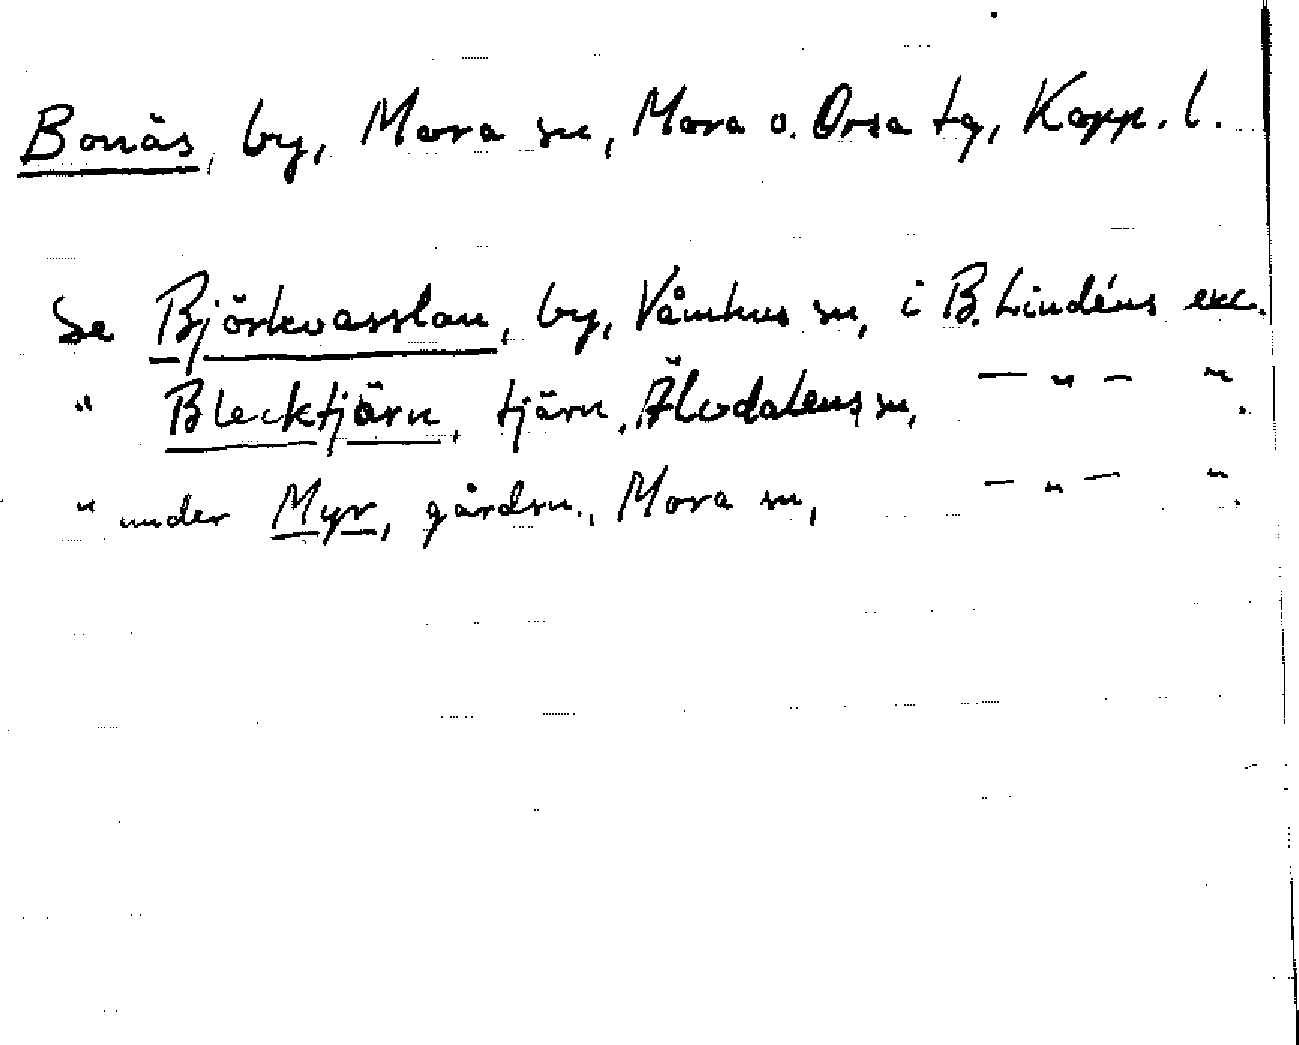 Bonäs, by, Mora sn, Mora o. Orsa tg, Kopp. l.
Se Björkvasslan, by, Våmhus sn, i B. Lindéns exc.
" Blecktjärn, tjärn, Älvdalens sn, — " — " .
" under Myr, gårdsn., Mora sn, — " — " .